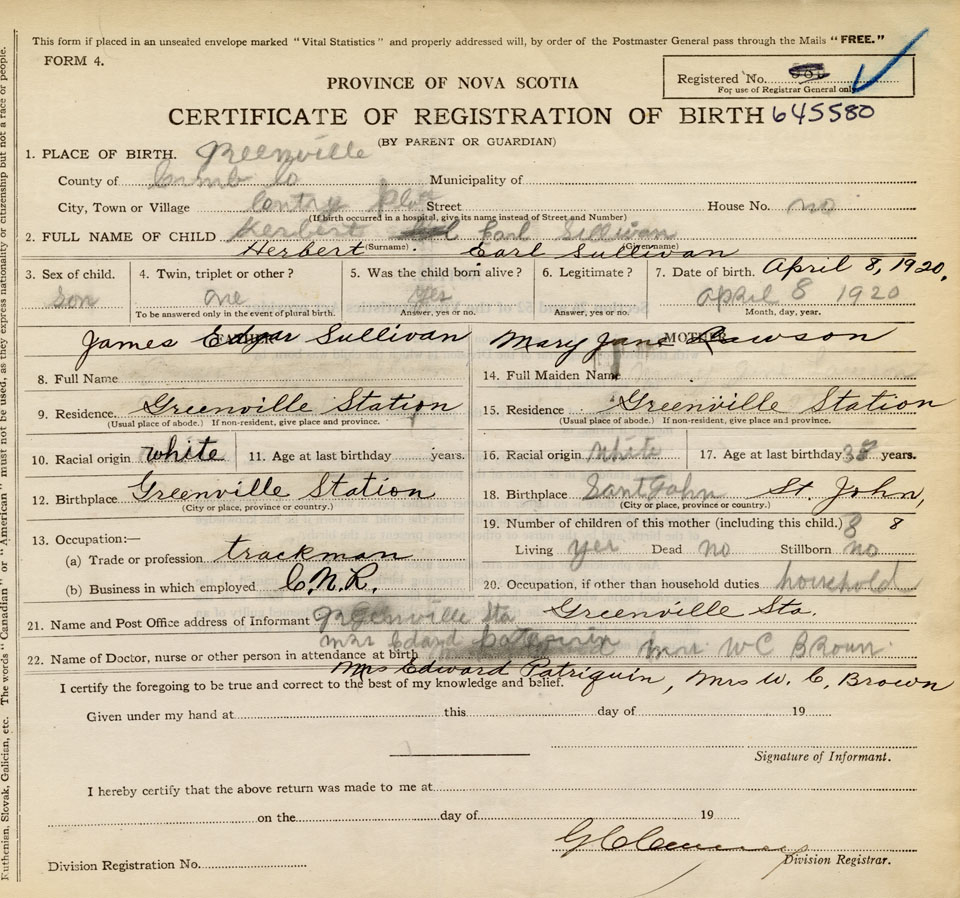 This form if placed in an unsealed envelope marked "Vital Statistics" and properly addressed will, by order of the Postmaster General pass through the Mails "FREE."
FORM 4.
Registered No.
For use of Registrar General only
PROVINCE OF NOVA SCOTIA
CERTIFICATE OF REGISTRATION OF BIRTH 645580
(BY PARENT OR GUARDIAN)
1. PLACE OF BIRTH. Greenville
County of Cumb Co Municipality of
City, Town or Village Contry Place Street House No. no
(If birth occurred in a hospital, give its name instead of Street and Number)
2. FULL NAME OF CHILD Herbert Earl Sullivan
Herbert (Surname) Earl Sullivan (Given name)
3. Sex of child. 4. Twin, triplet or other? 5. Was the child born alive? 6. Legitimate? 7. Date of birth. April 8, 1920.
Son one Yes April 8 1920
To be answered only in the event of plural birth. Answer, yes or no. Answer, yes or no. Month, day, year.
James Edgar Sullivan Mary Jane Rawson
FATHER MOTHER
8. Full Name 14. Full Maiden Name
9. Residence Greenville Station 15. Residence Greenville Station
(Usual place of abode.) If non-resident, give place and province. (Usual place of abode.) If non-resident, give place and province.
10. Racial origin white 11. Age at last birthday years. 16. Racial origin white 17. Age at last birthday 38 years.
12. Birthplace Greenville Station 18. Birthplace Sant John St. John,
(City or place, province or country.) (City or place, province or country.)
13. Occupation:— 19. Number of children of this mother (including this child.) 8 8
(a) Trade or profession trackman Living yes Dead no Stillborn no
(b) Business in which employed C.N.R. 20. Occupation, if other than household duties household
21. Name and Post Office address of Informant Greenville Sta Greenville Sta.
22. Name of Doctor, nurse or other person in attendance at birth Mrs Edard Mrs W C Brown
Mrs Edward Patriquin, Mrs W. C. Brown
I certify the foregoing to be true and correct to the best of my knowledge and belief.
Given under my hand at this day of 19
Signature of Informant.
I hereby certify that the above return was made to me at
on the day of 19
Division Registration No. Division Registrar.
Ruthenian, Slovak, Galician, etc. The words "Canadian" or "American" must not be used, as they express nationality or citizenship but not a race or people.